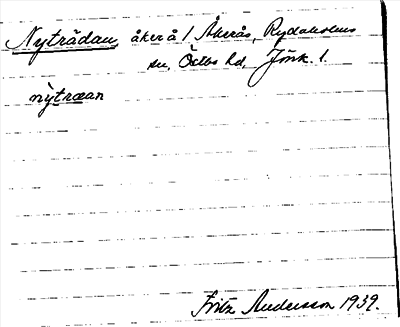 Nyträdan, åker å / Åkerås, Rydaholms
sn, Östbo hd, Jönk. l.
nỳtræan
Fritz Andersson 1939.